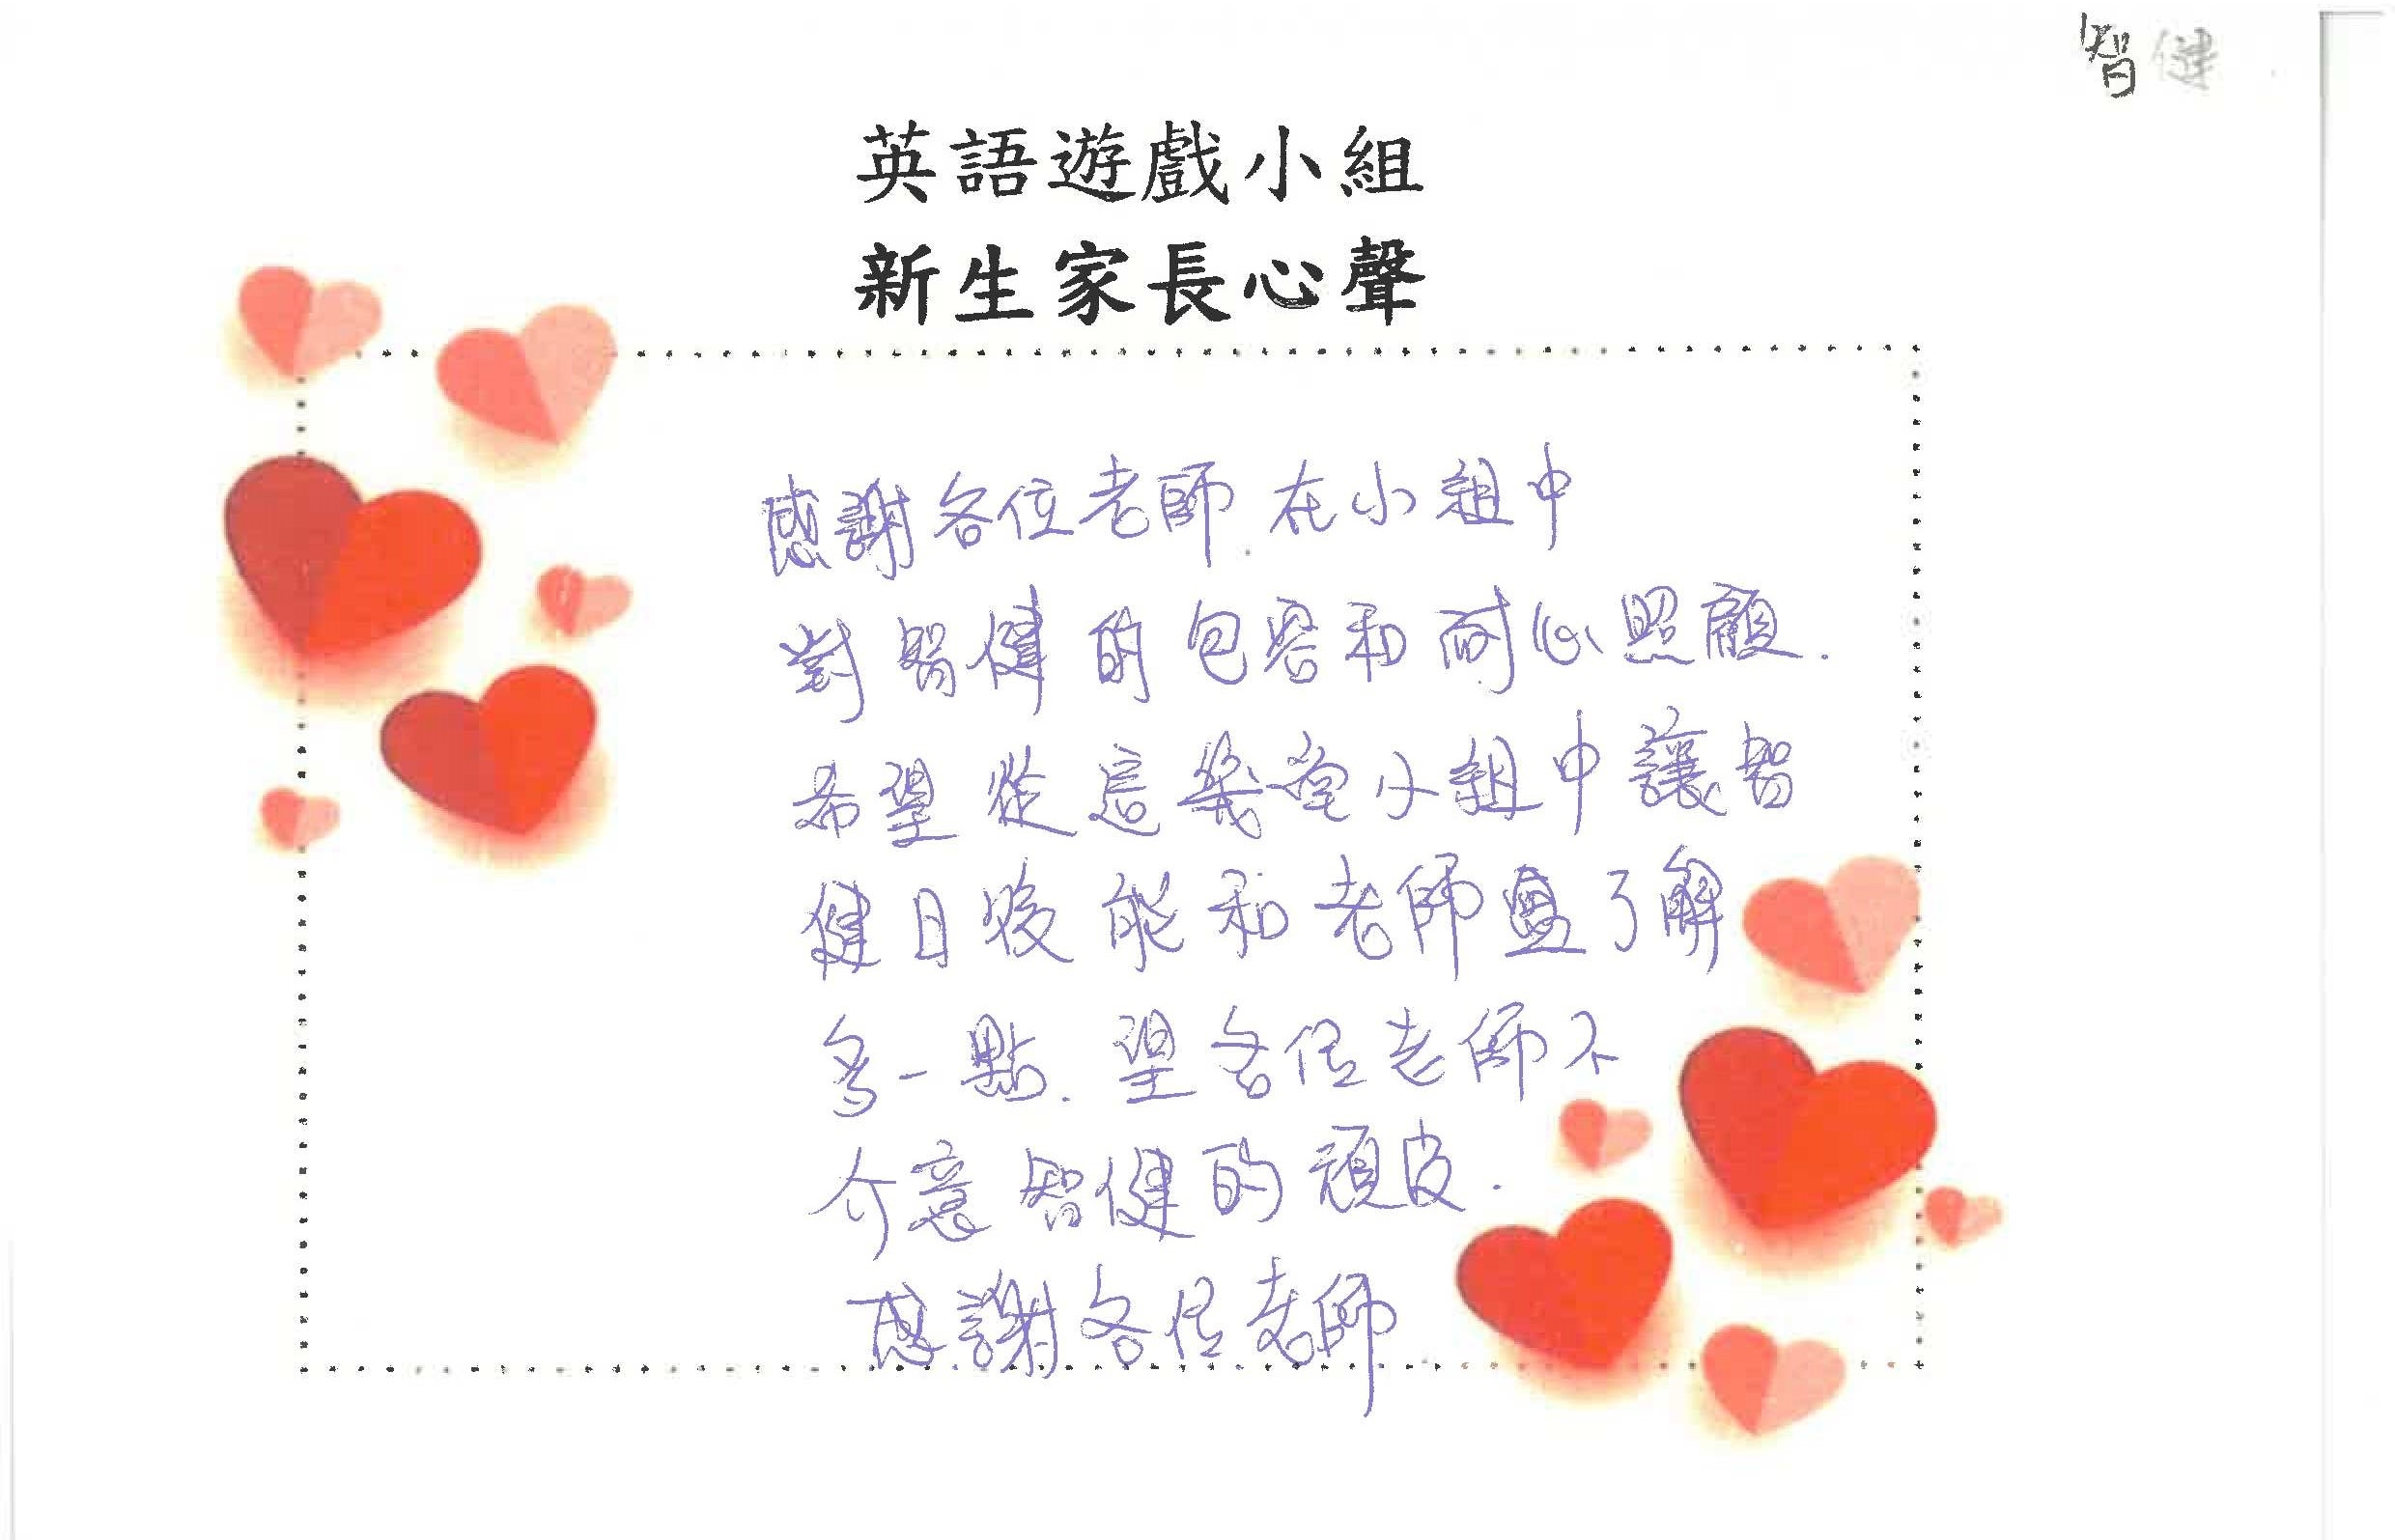 智健
英語遊戲小組
新生家長心聲
感謝各位老師.在小組中
對智健的包容和耐心照顧.
希望從這幾堂小組中讓智
健日後能和老師 了解
多一點.望各位老師不
介意智健的頑皮.
感謝各位老師